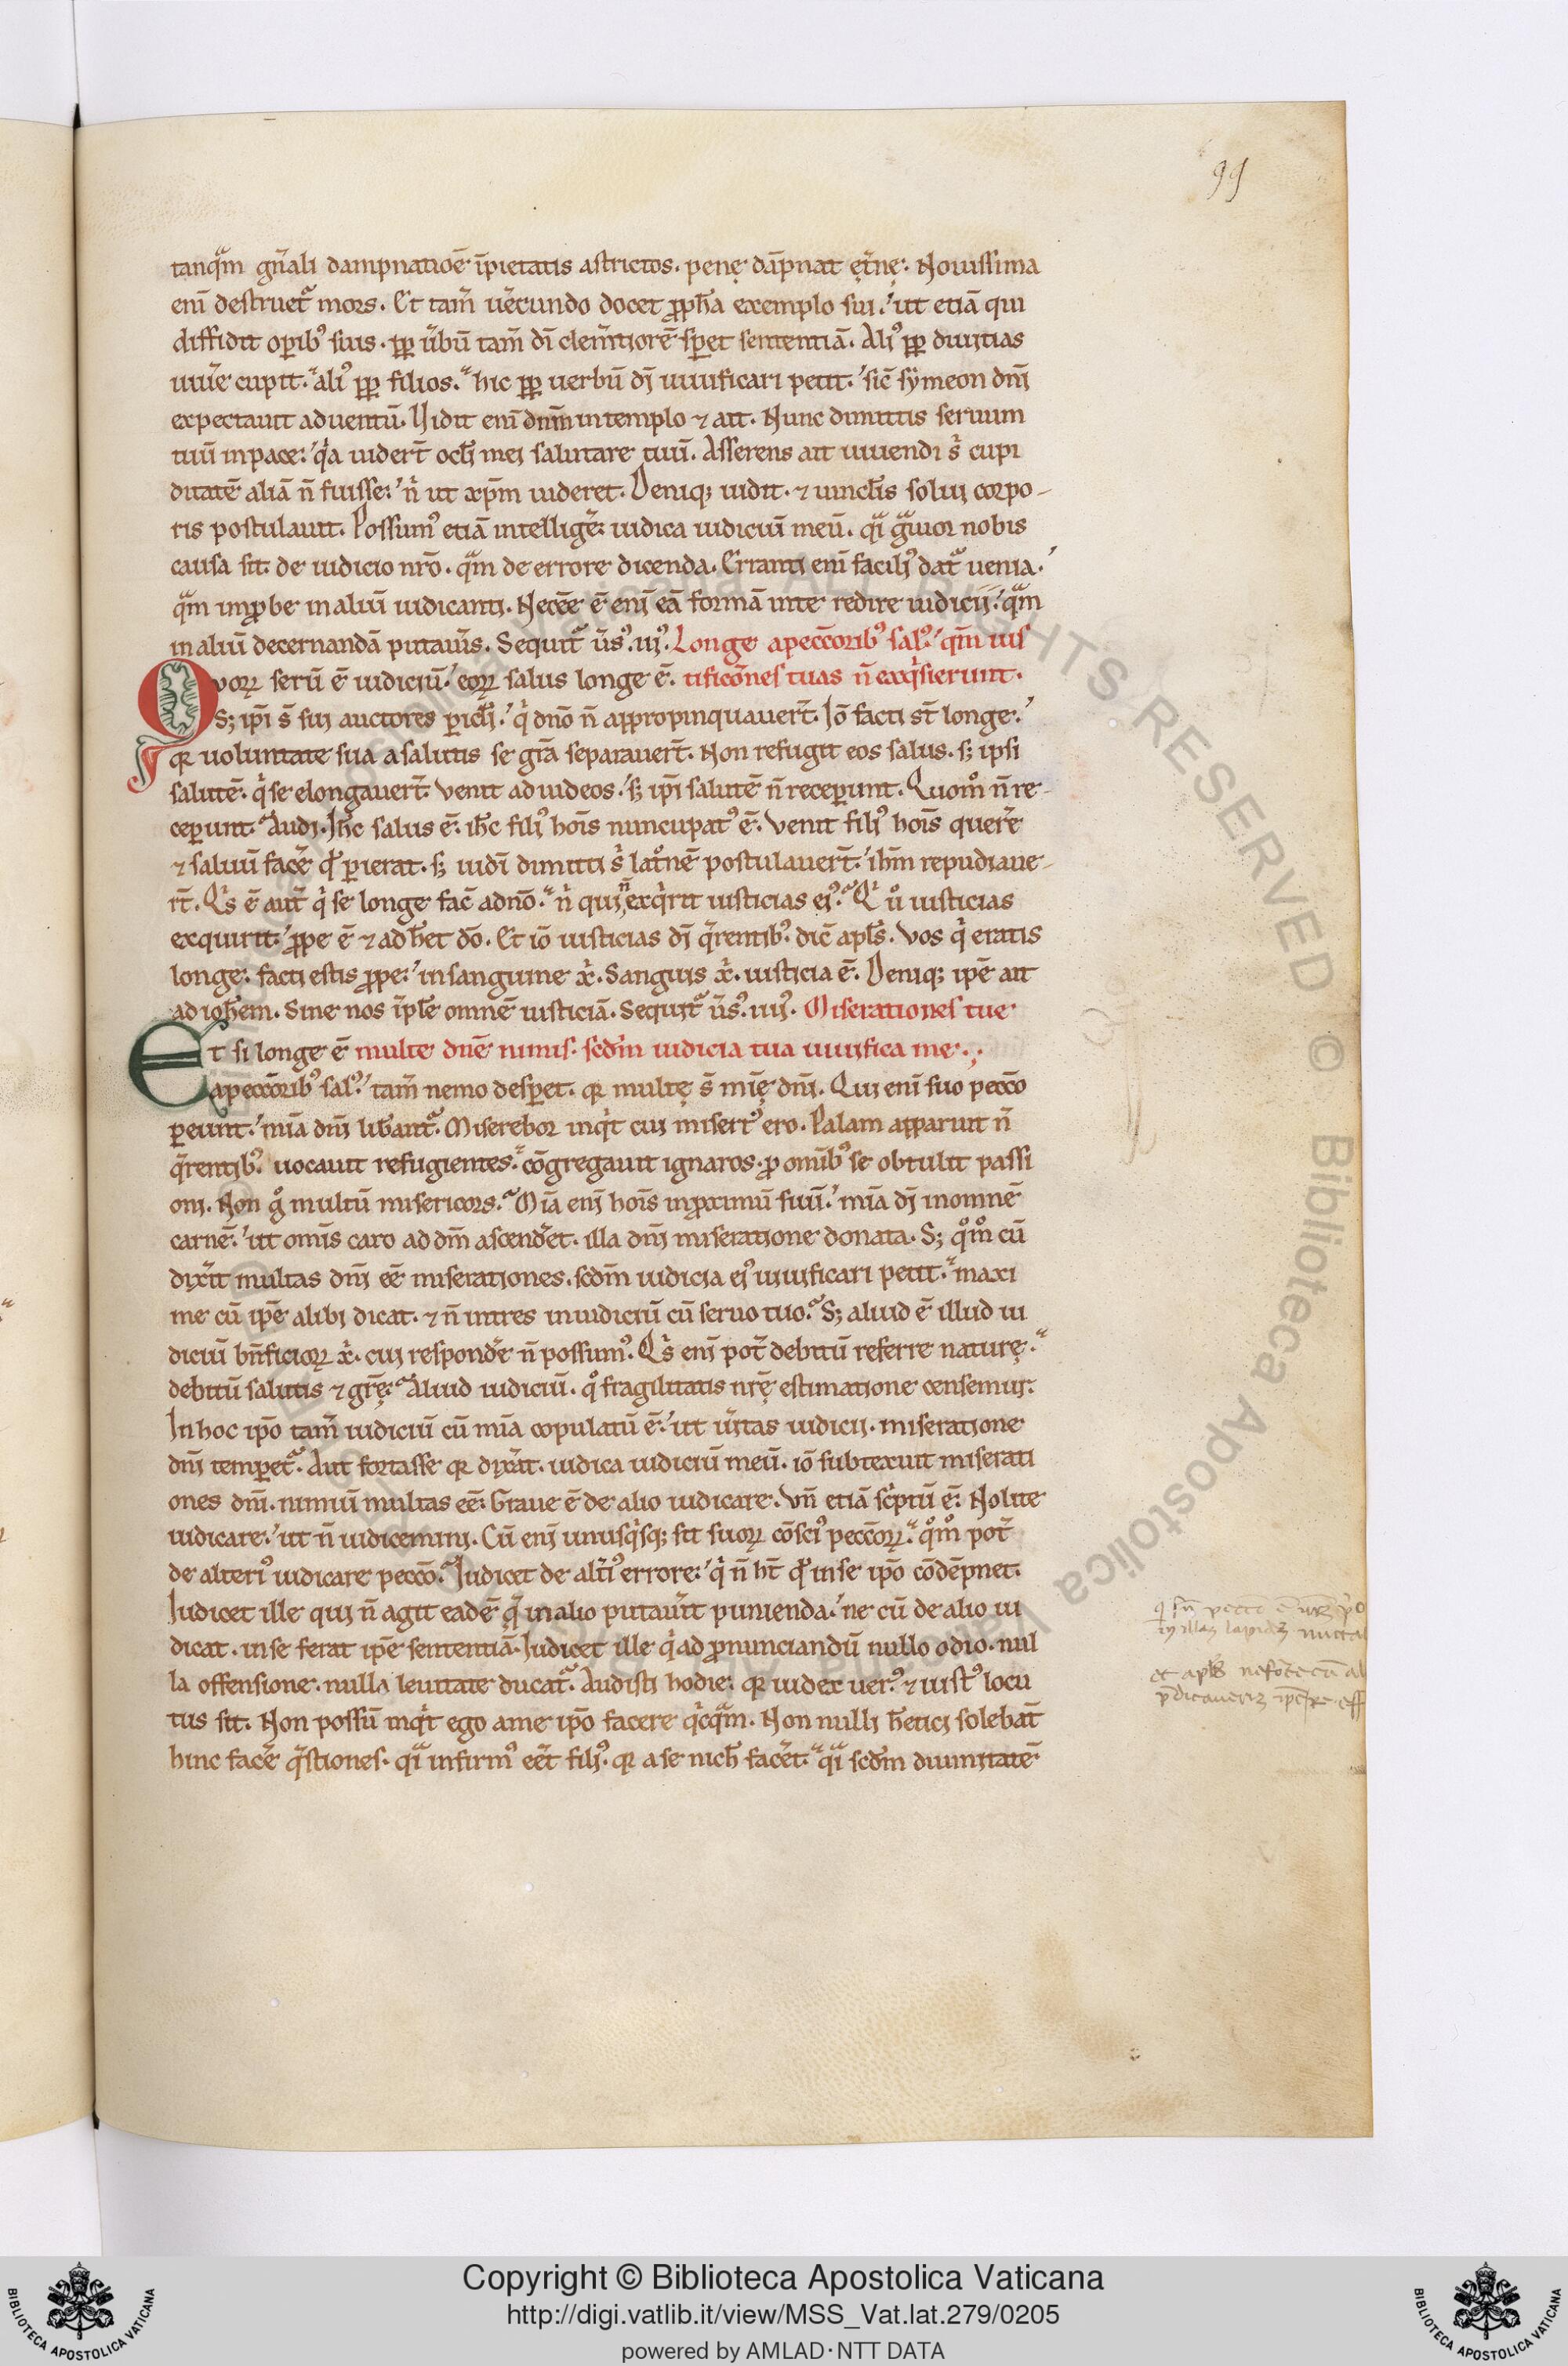 99
tanqᵃm gn̄ali dampnatioē īpietatis astrictos. penę dāpnat ęt̄nę. Nouissima
enī destruet᷑ mors. Et tam̄ uēcundo docet ꝓph̄a exemplo sui. ut etiā qui
diffidit oꝑibꝰ suis. ꝓp ūbū tam̄ dī clem̄tiorē sꝑet sententiā. Aliꝰ ꝓp diuitias
uiūe cupit. aliꝰ ꝓp filios. hic ꝓp uerbū dī uiuificari petit. sic̄ sẏmeon dnī
expectauit aduentū. Uidit enī dnm̄ in templo ⁊ ait. Nunc dimittis seruum
tuū in pace. qͥa uider̄t ocl̄i mei salutare tuū. Asserens ait uiuendi sͥ cupi
ditatē aliā n̄ fuisse. nͥ ut xp̄m uideret. Deniqꝫ uidit. ⁊ uincl̄is solui corpo-
ris postulauit. Possumꝰ etiā intelligē. iudica iudiciū meū. qͥᵃ gᵃuior nobis
causa sit de iudicio nr̄o. qᵃm de errore dicenda. Erranti enī faciliꝰ dat᷑ uenia.
qᵃm inꝓbe in aliū iudicanti. Necēe ē enī eā formā in te redire iudicii. qᵃm
in aliū decernandā putauīs. Sequit᷑ ūsꝰ. iiiꝰ. Longe a pecc̄oribꝰ salꝰ. qm̄ ius
Qvoꝝ serū ē iudiciū. eoꝝ salus longe ē. tificōnes tuas n̄ exqͥsierunt.
Sꝫ ip̄i s̄ sui auctores ꝑicl̄i. qͥ dno̅ n̄ appropinquauer̄t. Iō facti st̄ longe.
qꝛ uoluntate sua a salutis se gr̄a separauer̄t. Non refugit eos salus. sꝫ ipsi
salutē. qͥ se elongauer̄t. Venit ad iudeos. sꝫ ip̄i salutē n̄ receꝑunt. Quomͦ n̄ re-
ceꝑunt. Audi. Ih̄c salus ē. ih̄c filiꝰ hoīs nuncupatꝰ ē. Venit filiꝰ hoīs querē
⁊ saluū facē qđ ꝑierat. sꝫ iudī dimitti sͥ latͦnē postulauer̄t. ih̄m repudiaue-
r̄t. Qͥs ē aut̄ qͥ se longe fac̄ a dno̅. nͥ qui n̄ exqͥrit iusticias eiꝰ. Qͥ uͦ iusticias
exquirit. ꝓpe ē ⁊ adh̄et do̅. Et iō iusticias dī qͣrentibꝰ. dic̄ apl̄s. Vos qͥ eratis
longe. facti estis ꝓpe. in sanguine xͥ. Sanguis xͥ. iusticia ē. Deniqꝫ ipē ait
ad ioh̄em. Sine nos īplē omnē iusticiā. Sequit᷑ ūsꝰ. iiiiꝰ. Miserationes tue
Et si longe ē multe dn̄e nimis. scd̄m iudicia tua uiuifica me.
a pecc̄oribꝰ salꝰ. tam̄ nemo desꝑet. qꝛ multę s̄ mīę dnī. Qui enī suo pecc̄o
ꝑeunt. mīa dnī lib̄ant᷑. Miserebor inqͥt cui misertꝰ ero. Palam apparuit n̄
qͣrentibꝰ. uocauit refugientes. cōgregauit ignaros. ꝓ omībꝰ se obtulit passi
oni. Non gͦ multū misericors. Mīa enī hoīs in ꝓximū suū. mīa dī in omnē
carnē. ut omīs caro ad dm̄ ascendēt. illa dnī miseratione donata. Sꝫ qͦmͦ cū
dix̄it multas dnī eē miserationes. scd̄m iudicia eiꝰ uiuificari petit. maxi
me cū ipē alibi dicat. ⁊ n̄ intres in iudiciū cū seruo tuo. Sꝫ aliud ē illud iu
diciū bn̄ficioꝝ xͥ. cui respondē n̄ possumꝰ. Qͥs enī pot̄ debitū referre naturę.
debitū salutis ⁊ gr̄ę. Aliud iudiciū. qͦ fragilitatis nr̄ę estimatione censemur.
In hoc ip̄o tam̄ iudiciū cū mīa copulatū ē. ut ūitas iudicii. miseratione
dnī temꝑet᷑. Aut fortasse qꝛ dix̄at. iudica iudiciū meū. iō subtexuit miserati
ones dnī. nimiū multas eē. Graue ē de alio iudicare. Vn̄ etiā scͥptū ē. Nolite
iudicare. ut n̄ iudicemini. Cū enī unusqͥsqꝫ sit suoꝝ cōsciꝰ pecc̄oꝝ. qͦmͦ pot̄
de alteriꝰ iudicare pecc̄o. Iudicet de alt̄iꝰ errore. qͥ n̄ h̄t qđ in se ip̄o cōdēpnet.
Iudicet ille qui n̄ agit eadē qͣ in alio putaūit punienda. ne cū de alio iu
dicat. in se ferat ipē sententiā. Iudicet ille qͥ ad ꝓnunciandū nullo odio. nul
la offensione. nulla leuitate ducat᷑. Audisti hodie. qꝛ iudex uerꝰ. ⁊ iustꝰ locu
tus sit. Non possū inqͥt ego a me ip̄o facere qͥcqᵃm. Non nulli h̄etici solebāt
hinc facē qͣstiones. qͥᵃ infirmꝰ eēt filiꝰ. qꝛ a se nich̄ facēt. qͥᵃ scd̄m diuinitatē
Copyright © Biblioteca Apostolica Vaticana
http://digi.vatlib.it/view/MSS_Vat.lat.279/0205
powered by AMLAD·NTT DATA